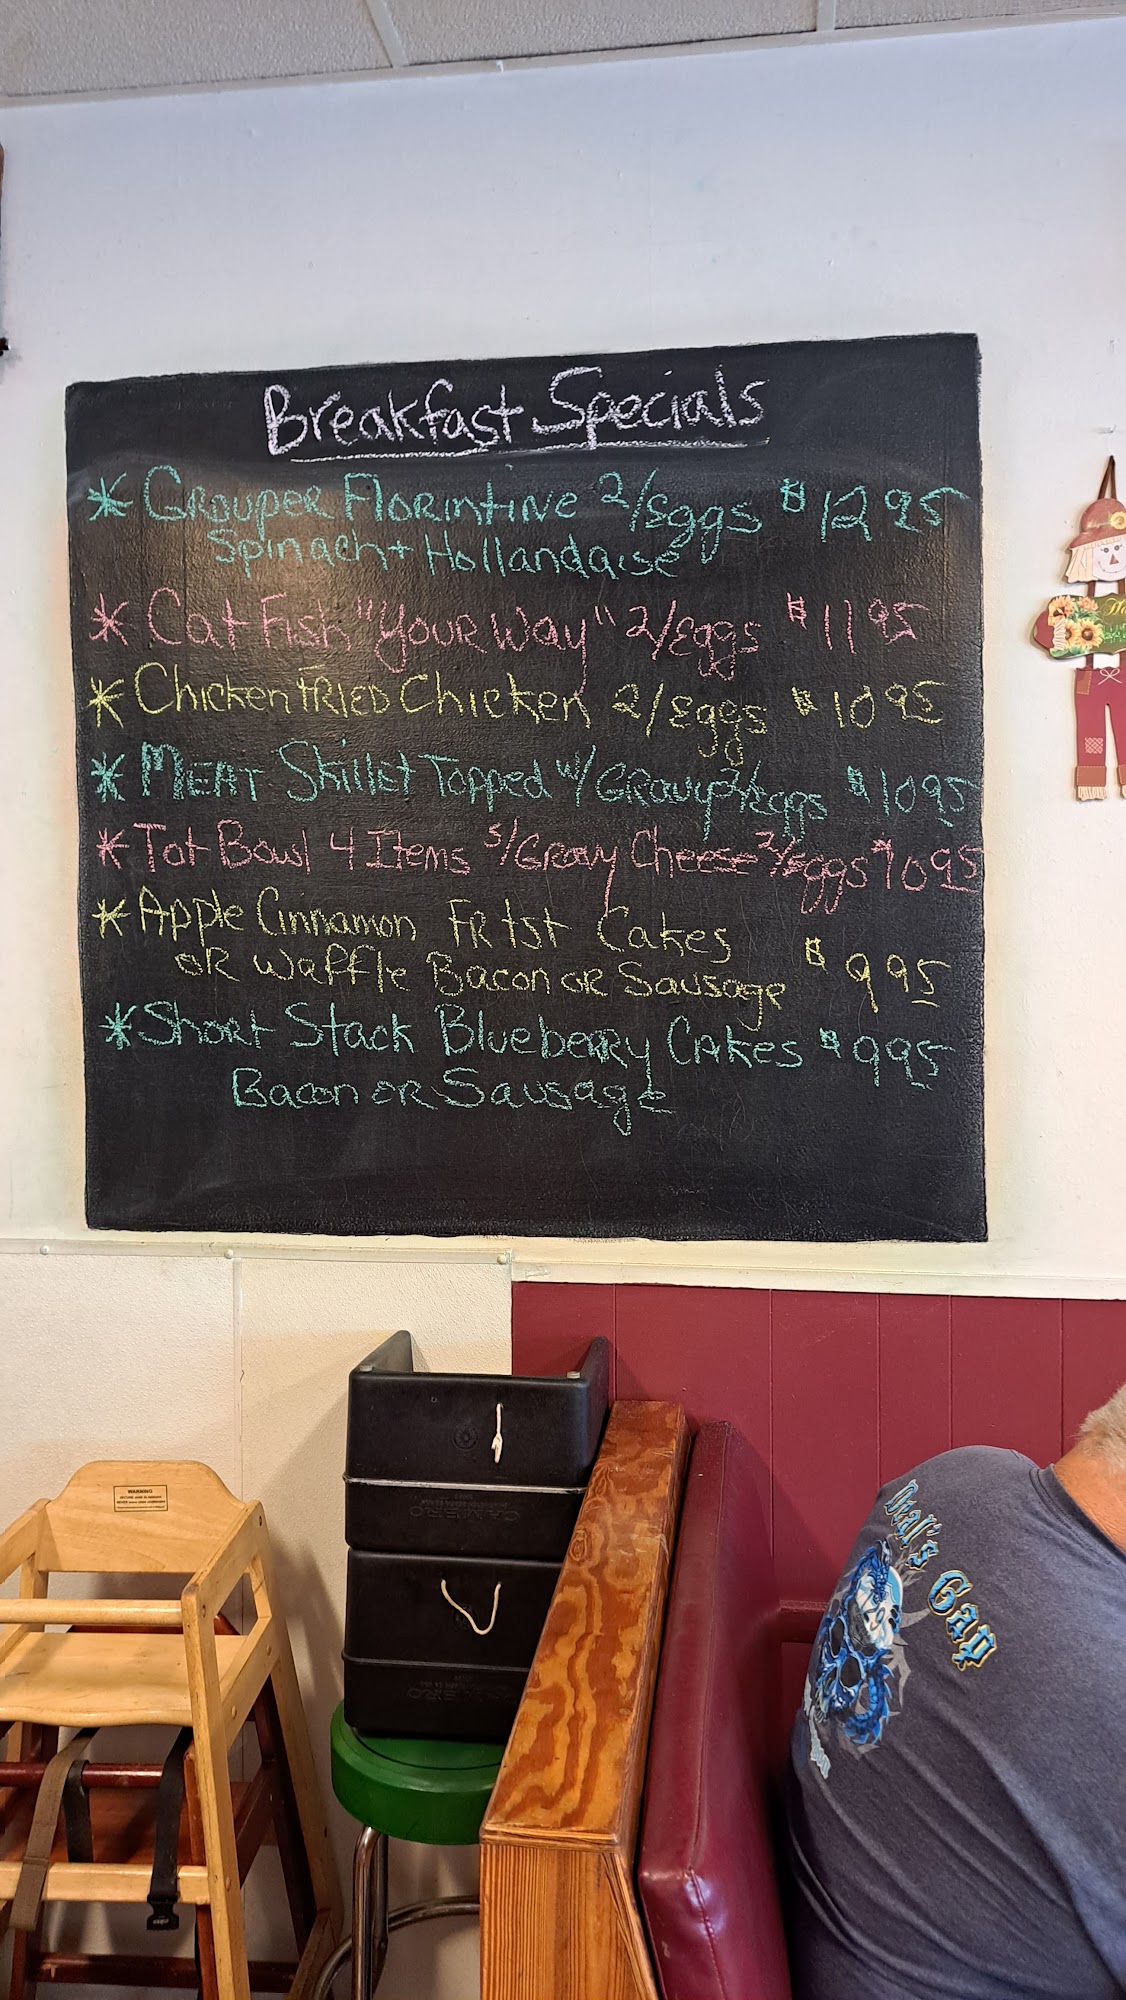 Breakfast Specials
* Grouper Florintine 2/Eggs $12 95
Spinach + Hollandaise
* Cat Fish "Your Way" 2/Eggs $11 95
* Chicken FRIED Chicken 2/Eggs $10 95
* MEAT Skillet Topped w/ Gravy 2/Eggs $10 95
* Tot Bowl 4 Items s/Gravy Cheese 2/Eggs $10 95
* Apple Cinnamon FR tst Cakes
OR Waffle Bacon OR Sausage $9 95
* Short Stack Blueberry Cakes $9 95
Bacon OR Sausage
WARNING
CAMBRO
CAMBRO
Deal's Gap